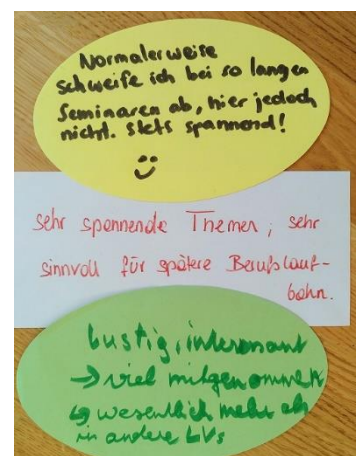 Normalerweise
schweife ich bei so langen
Seminaren ab, hier jedoch
nicht. Stets spannend!
sehr spannende Themen, sehr
sinnvoll für spätere Berufslauf-
bahn.
lustig, interessant
→ viel mitgenommen
↳ wesentlich mehr als
in andere LVs